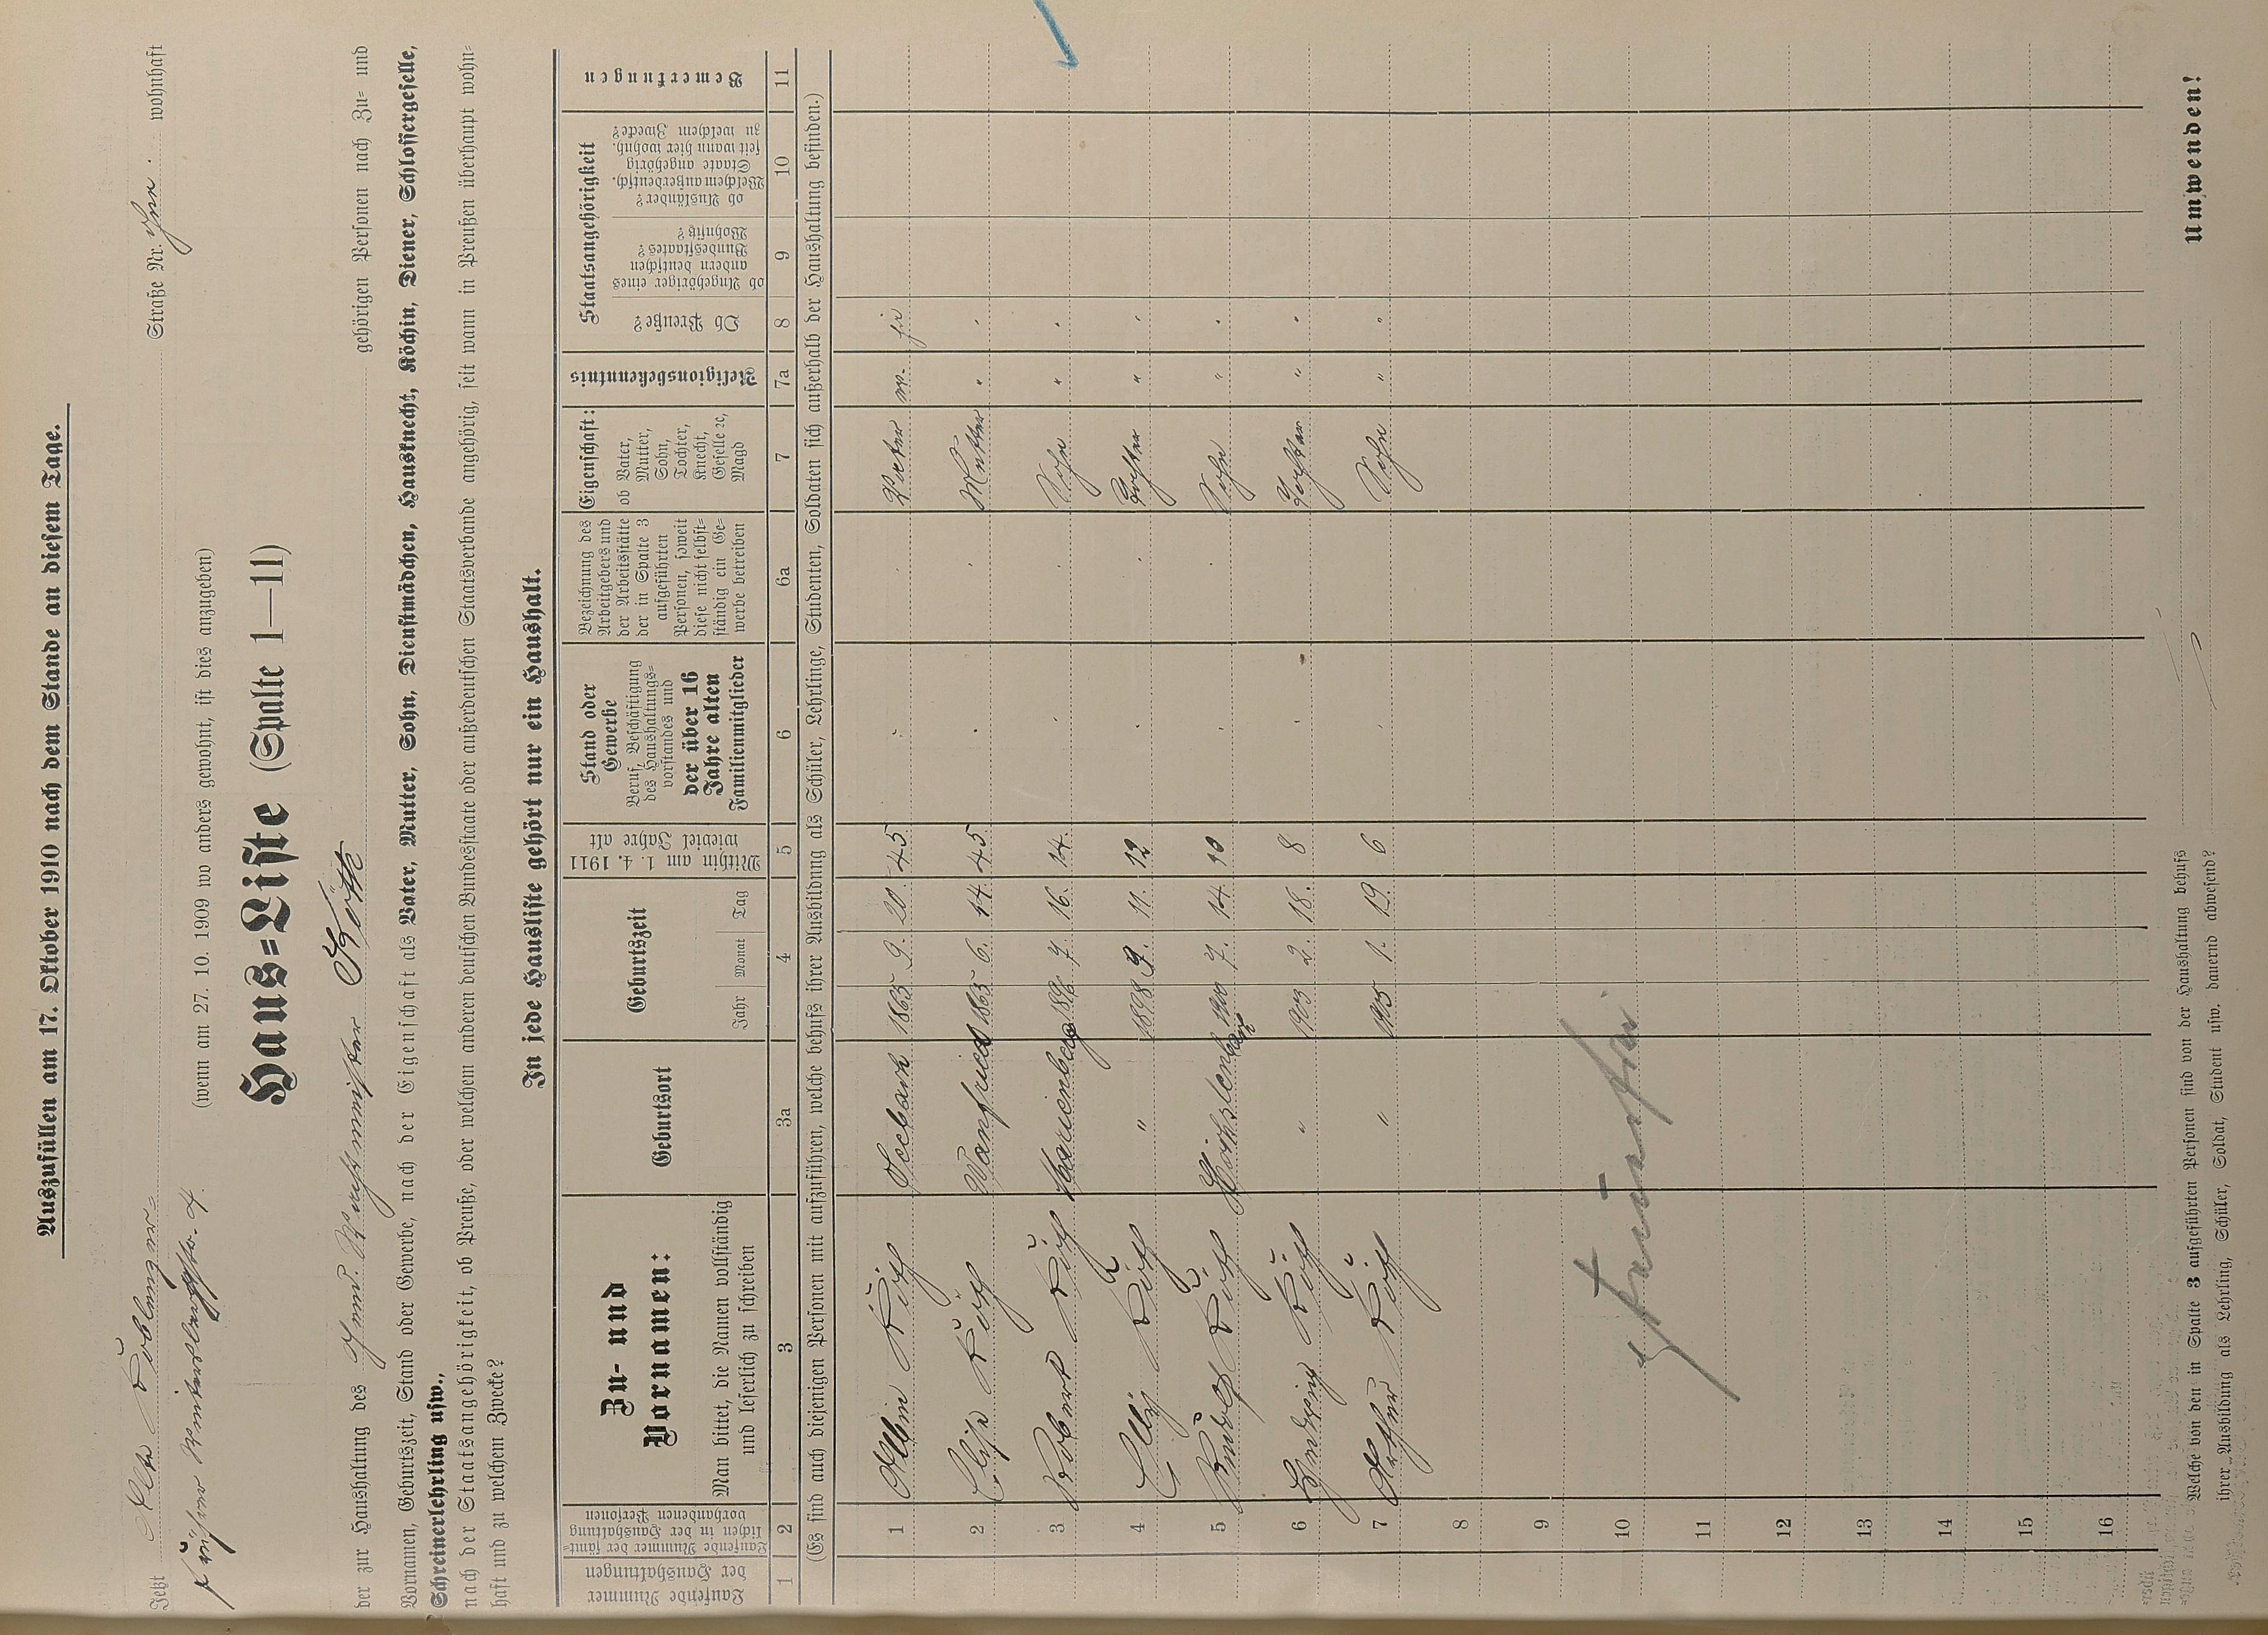 Auszufüllen am 17. Oktober 1910 nach dem Stande an diesem Tage.
Jetzt Alte Coblenzer- Straße Nr. wohnhaft
früher
(wenn am 27. 10. 1909 wo anders gewohnt, ist dies anzugeben)
Haus=Liste (Spalte 1—11)
der zur Haushaltung des gehörigen Personen nach Zu= und
Vornamen, Geburtszeit, Stand oder Gewerbe, nach der Eigenschaft als Vater, Mutter, Sohn, Dienstmädchen, Hausknecht, Köchin, Diener, Schlossergeselle,
Schreinerlehrling usw.,
nach der Staatsangehörigkeit, ob Preuße, oder welchem anderen deutschen Bundesstaate oder außerdeutschen Staatsverbande angehörig, seit wann in Preußen überhaupt wohn=
haft und zu welchem Zwecke?
In jede Hausliste gehört nur ein Haushalt.
Laufende Nummer der Haushaltungen
Laufende Nummer der sämt= lichen in der Haushaltung vorhandenen Personen
Zu- und Vornamen:
Man bittet, die Namen vollständig und leserlich zu schreiben
Geburtsort
Geburtszeit
Jahr Monat Tag
Mithin am 1. 4. 1911 wieviel Jahre alt
Stand oder Gewerbe
Beruf, Beschäftigung des Haushaltungs= vorstandes und
der über 16 Jahre alten Familienmitglieder
Bezeichnung des Arbeitgebers und der Arbeitsstätte der in Spalte 3 aufgeführten Personen, soweit diese nicht selbst= ständig ein Ge= werbe betreiben
Eigenschaft:
ob Vater, Mutter, Sohn, Tochter, Knecht, Geselle ꝛc, Magd
Religionsbekenntnis
Staatsangehörigkeit
Ob Preuße?
ob Angehöriger eines andern deutschen Bundesstaates? Wohnsitz?
ob Ausländer? Welchem außerdeutsch. Staate angehörig seit wann hier wohnh. zu welchem Zwecke?
Bemerkungen
1 2 3 3a 4 5 6 6a 7 7a 8 9 10 11
(Es sind auch diejenigen Personen mit aufzuführen, welche behufs ihrer Ausbildung als Schüler, Lehrlinge, Studenten, Soldaten sich außerhalb der Haushaltung befinden.)
1 Albin Köth Seebach 1865 9. 20. 45 Vater ev. ja
2 Elise Köth Wanfried 1865 6. 14. 45 Mutter "
3 Robert Köth Marienberg 1896 7. 16. 14. Sohn "
4 Elly Köth " 1898 9. 11. 12 Tochter "
5 Rudolf Köth 1900 7. 14. 10 Sohn "
6 Hedwig Köth " 1903 2. 18. 8 Tochter "
7 Arthur Köth " 1905 1. 19. 6 Sohn "
8
9
10
11
12
13
14
15
16
Welche von den in Spalte 3 aufgeführten Personen sind von der Haushaltung behufs
ihrer Ausbildung als Lehrling, Schüler, Soldat, Student usw. dauernd abwesend?
Umwenden!